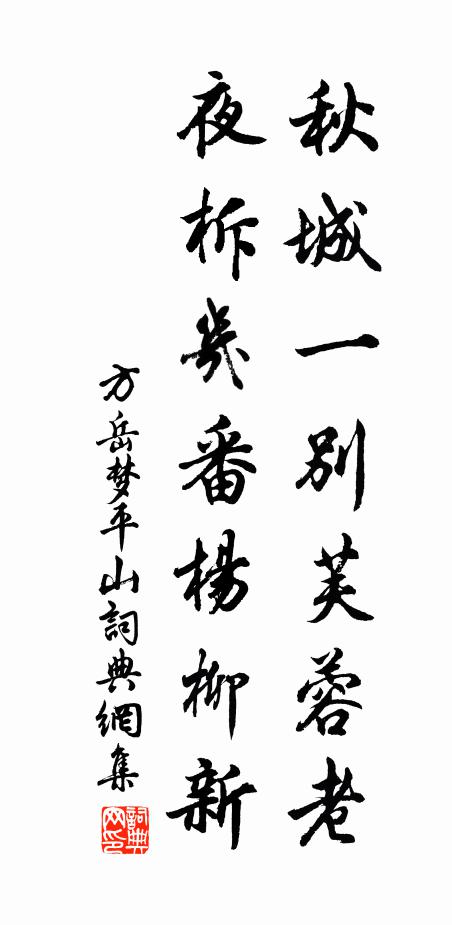 秋城一别芙蓉老
夜柝幾番楊柳新
方岳梦平山詞典網集
詞典网印